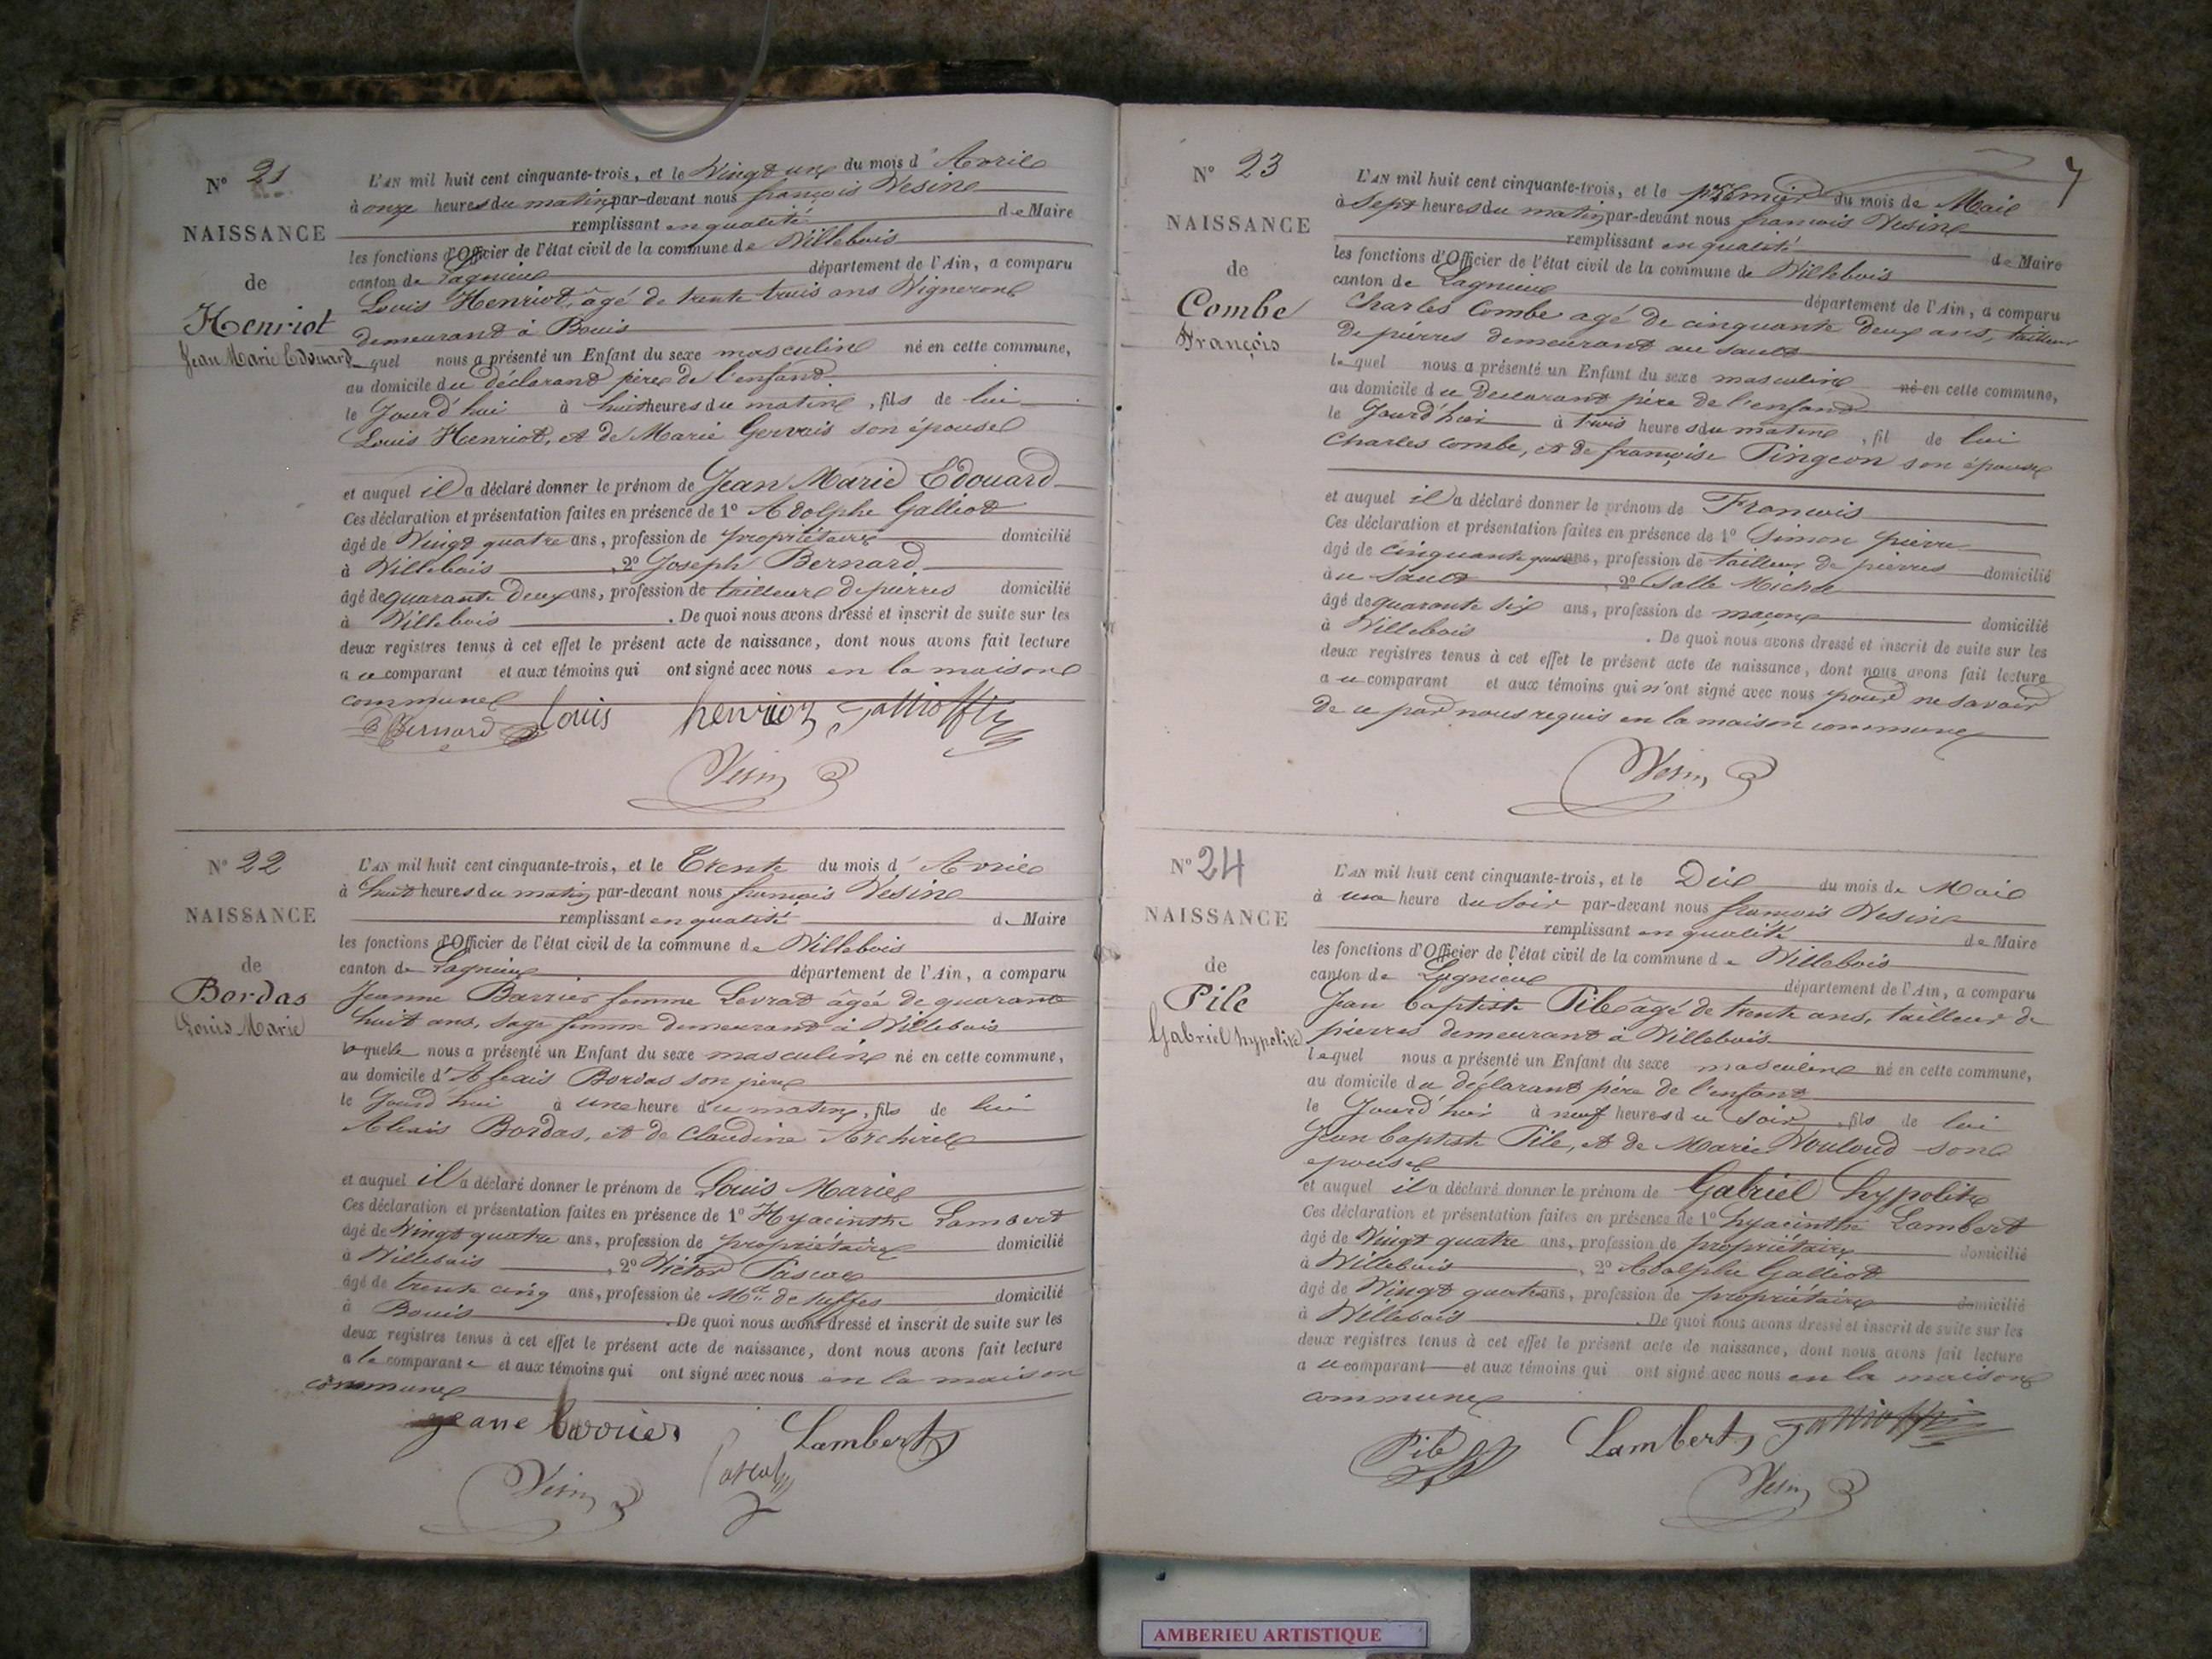 N° 21
NAISSANCE
de
Henriot
Jean Marie Edouard
L'AN mil huit cent cinquante-trois, et le Vingt un du mois d'Avril
à onze heures du matin, par-devant nous françois Vesin
remplissant en qualité de Maire
les fonctions d'Officier de l'état civil de la commune de Villebois
canton de Lagnieu département de l'Ain, a comparu
Louis Henriot, âgé de trente trois ans Vigneron
demeurant à Bouis
quel nous a présenté un Enfant du sexe masculin né en cette commune,
au domicile du déclarant père de l'enfant
le Jourd'hui à huit heures du matin, fils de lui
Louis Henriot, et de Marie Gervais son épouse
et auquel il a déclaré donner le prénom de Jean Marie Edouard
Ces déclaration et présentation faites en présence de 1° Adolphe Galliot
âgé de Vingt quatre ans, profession de propriétaire domicilié
à Villebois, 2° Joseph Bernard
âgé de quarante deux ans, profession de tailleur de pierres domicilié
à Villebois. De quoi nous avons dressé et inscrit de suite sur les
deux registres tenus à cet effet le présent acte de naissance, dont nous avons fait lecture
au comparant et aux témoins qui ont signé avec nous en la maison
commune
Bernard louis henriot
Vesin
N° 22
NAISSANCE
de
Bordas
Louis Marie
L'AN mil huit cent cinquante-trois, et le Trente du mois d'Avril
à huit heures du matin par-devant nous françois Vesin
remplissant en qualité de Maire
les fonctions d'Officier de l'état civil de la commune de Villebois
canton de Lagnieu département de l'Ain, a comparu
Jeanne Barrier femme Levrat âgée de quarante
huit ans, sage femme demeurant à Villebois
laquelle nous a présenté un Enfant du sexe masculin né en cette commune,
au domicile d'Alexis Bordas son père
le Jourd'hui à une heure du matin, fils de lui
Alexis Bordas, et de Claudine
et auquel il a déclaré donner le prénom de Louis Marie
Ces déclaration et présentation faites en présence de 1° Hyacinthe Lambert
âgé de Vingt quatre ans, profession de propriétaire domicilié
à Villebois, 2° Victor Pascal
âgé de trente cinq ans, profession de domicilié
à Bouis. De quoi nous avons dressé et inscrit de suite sur les
deux registres tenus à cet effet le présent acte de naissance, dont nous avons fait lecture
a la comparante et aux témoins qui ont signé avec nous en la maison
commune
Lambert
Vesin
7
N° 23
NAISSANCE
de
Combe
François
L'AN mil huit cent cinquante-trois, et le premier du mois de Mai
à Sept heures du matin, par-devant nous francois Vesin
remplissant en qualité de Maire
les fonctions d'Officier de l'état civil de la commune de Villebois
canton de Lagnieu département de l'Ain, a comparu
Charles Combe agé de cinquante deux ans, tailleur
de pierres demeurant au Sault
lequel nous a présenté un Enfant du sexe masculin né en cette commune,
au domicile du Déclarant père de l'enfant
le Jourd'hui à trois heures du matin, fil de lui
Charles Combe, et de françoise Pingeon son épouse
et auquel il a déclaré donner le prénom de Francois
Ces déclaration et présentation faites en présence de 1° Simon pierre
âgé de cinquante ans, profession de tailleur de pierres domicilié
au Sault, 2° Salle Michel
âgé de quarante six ans, profession de maçon domicilié
à Villebois. De quoi nous avons dressé et inscrit de suite sur les
deux registres tenus à cet effet le présent acte de naissance, dont nous avons fait lecture
au comparant et aux témoins qui n'ont signé avec nous pour ne savoir
de ce par nous requis en la maison commune
Vesin
N° 24
NAISSANCE
de
Pile
Gabriel hypolite
L'AN mil huit cent cinquante-trois, et le Dix du mois de Mai
à une heure du Soir par-devant nous françois Vesin
remplissant en qualité de Maire
les fonctions d'Officier de l'état civil de la commune de Villebois
canton de Lagnieu département de l'Ain, a comparu
Jean baptiste Pile âgé de trente ans, tailleur de
pierres demeurant à Villebois
lequel nous a présenté un Enfant du sexe masculin né en cette commune,
au domicile du déclarant père de l'enfant
le Jourd'hier à neuf heures du Soir, fils de lui
Jean baptiste Pile, et de Marie Vouloud son
epouse
et auquel il a déclaré donner le prénom de Gabriel hypolite
Ces déclaration et présentation faites en présence de 1° hyacinthe Lambert
âgé de Vingt quatre ans, profession de propriétaire domicilié
à Villebois, 2° Adolphe Galliot
âgé de Vingt quatre ans, profession de propriétaire domicilié
à Villebois. De quoi nous avons dressé et inscrit de suite sur les
deux registres tenus à cet effet le présent acte de naissance, dont nous avons fait lecture
au comparant et aux témoins qui ont signé avec nous en la maison
commune
Pile Lambert
Vesin
AMBERIEU ARTISTIQUE